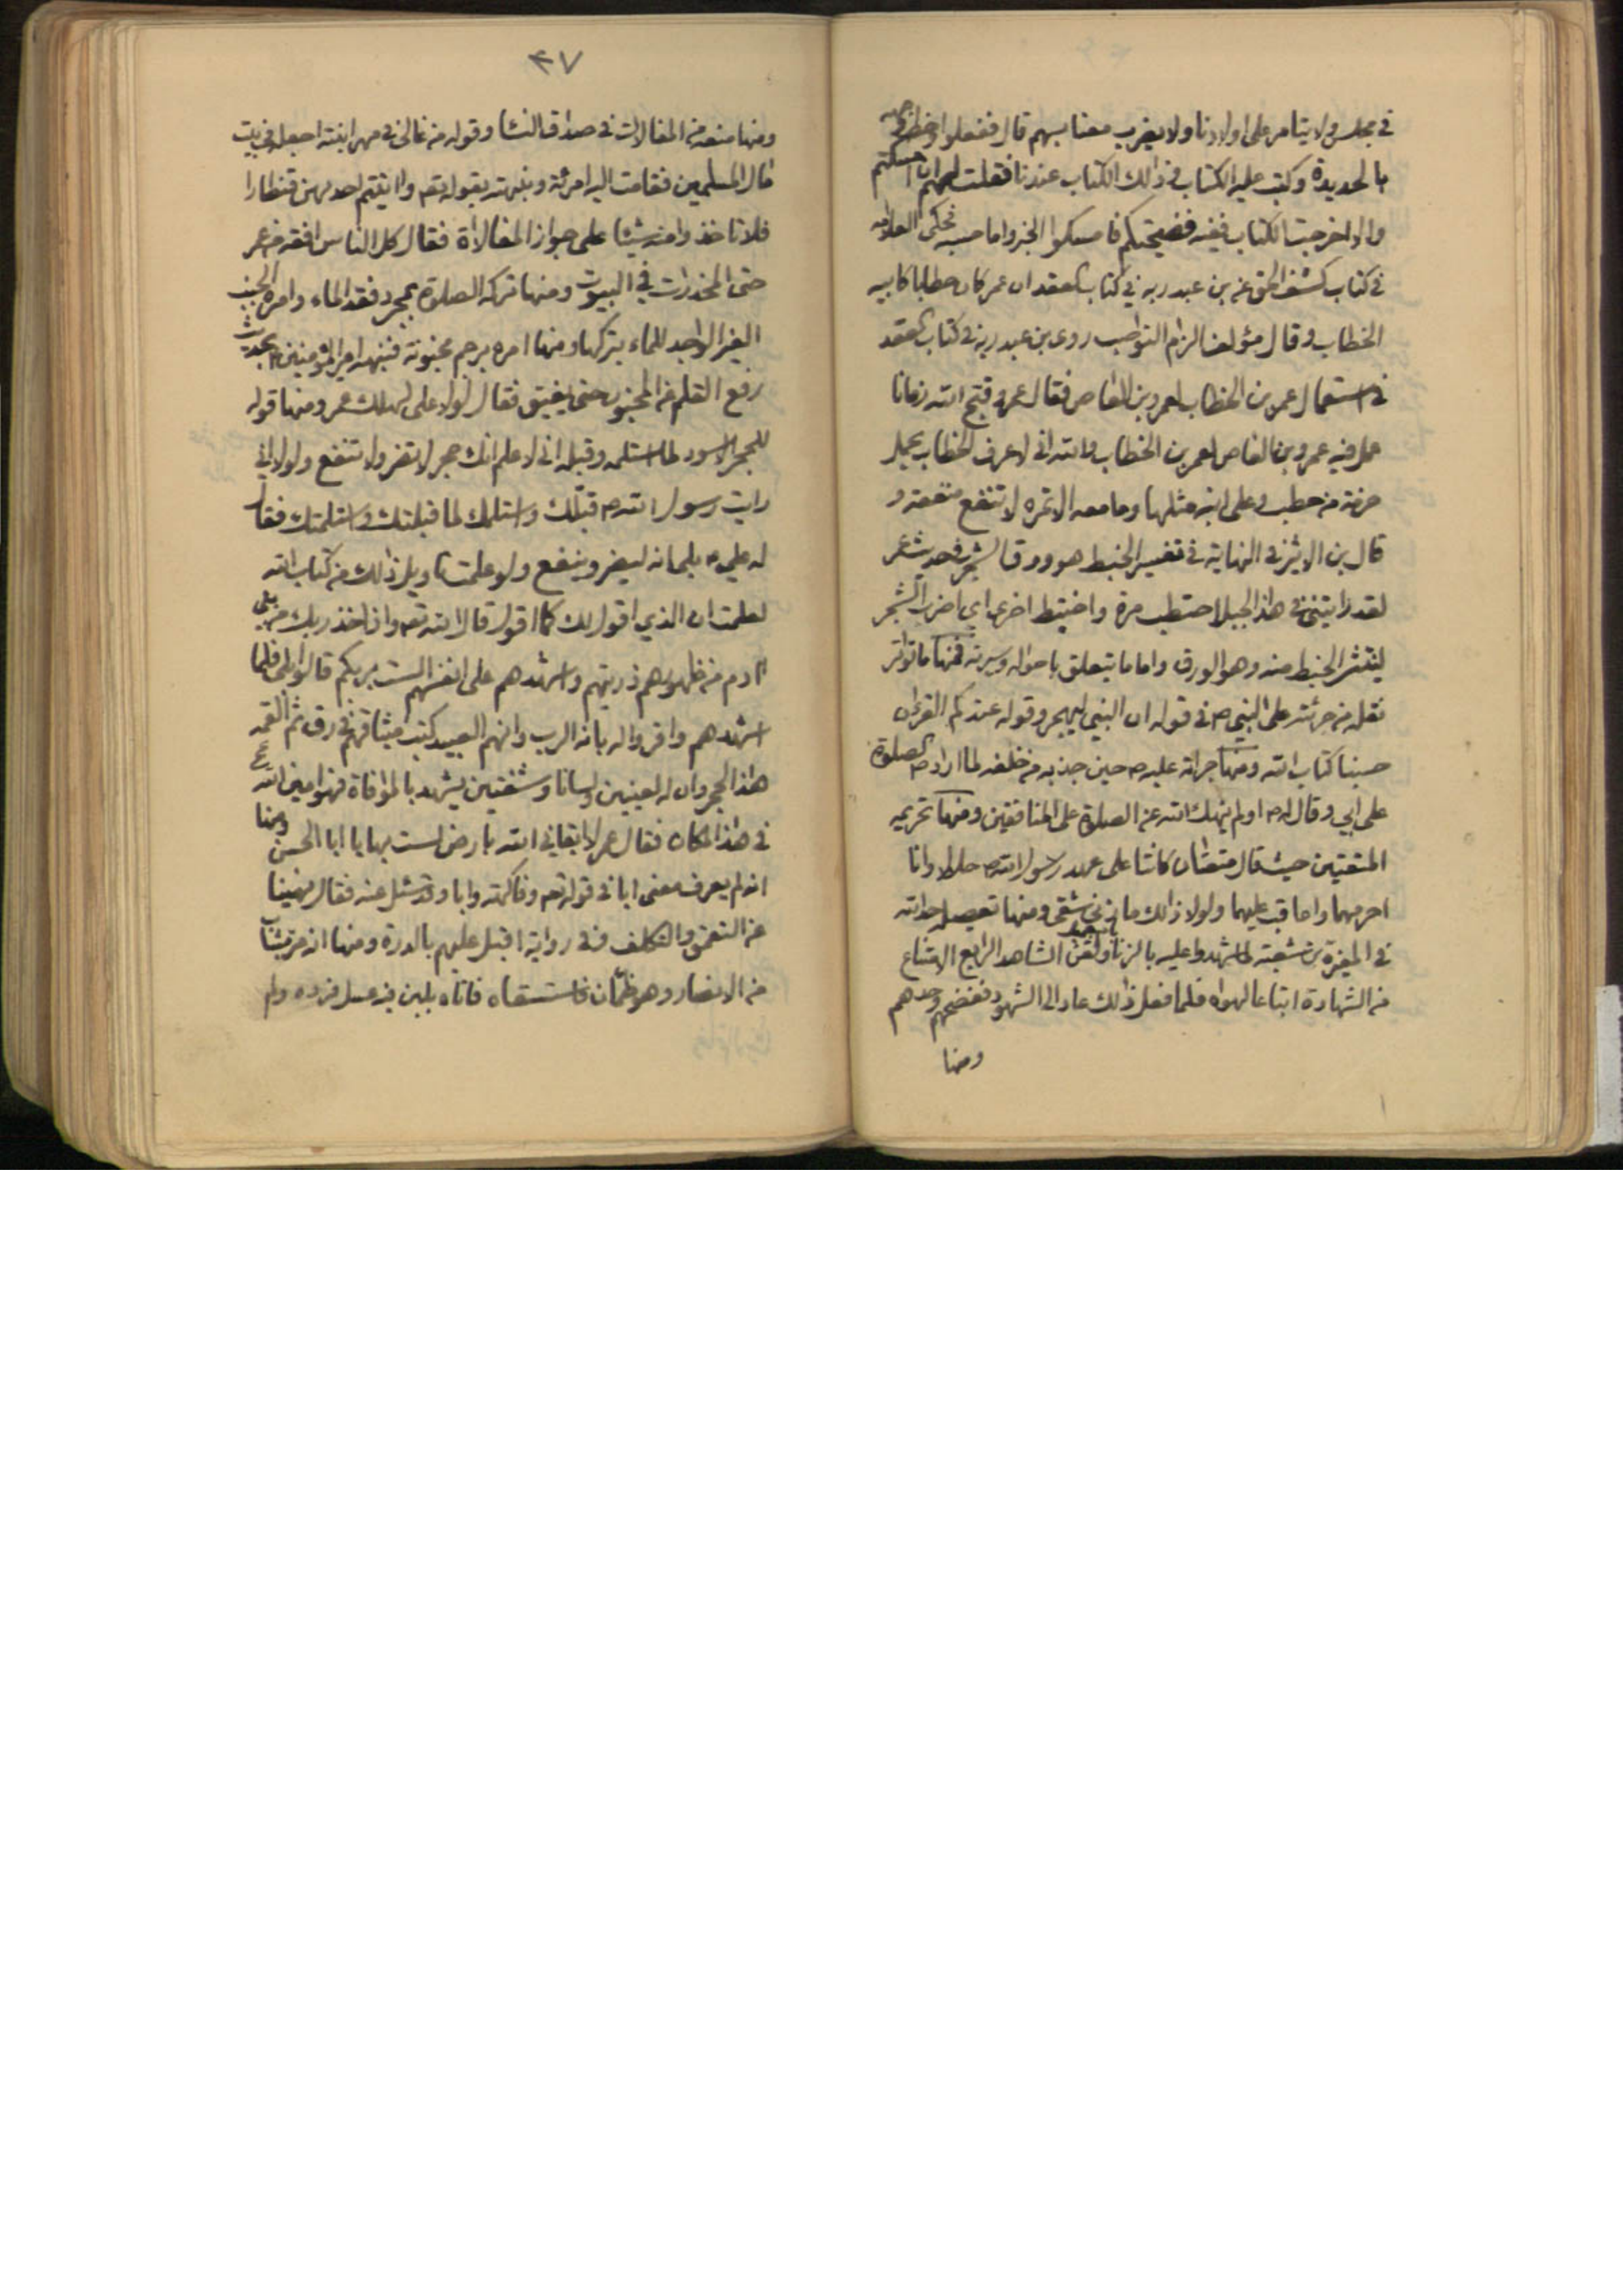 في مجلس ولا يتامر على اولادنا ولا يضرب معنا بسهم قال ففعلوا وخط
بالحديدة وكتب عليه الكتاب في ذالك الكتاب عندنا فقلت لهم ان امسكتم
والا اخرجت الكتاب ففيه فضيحتكم فامسكوا الخبر واما حسبه فحكى العلامه
في كتاب كشف الحق عن بن عبد ربه في كتاب العقد ان عمر كان حطابا كابيه
الخطاب وقال مؤلف الزام النواصب روى بن عبد ربه في كتاب العقد
في استعمال عمر بن الخطاب لعمرو بن العاص فقال عمرو قبح الله زمانا
عمل فيه عمرو بن العاص لعمر بن الخطاب والله اني لاعرف الخطاب يحمل
حزمة من حطب وعلى ابنه مثلها وما معه الا تمره لا تنفع منفعه و
قال بن الاثير في النهاية في تفسير الخبط هو ورق الشجر في حديث عمر
لقد رايتني في هذا الجبل احتطب مرة واختبط اخرى اي اضرب الشجر
لينتثر الخبط منه وهو الورق واما ما يتعلق باحواله وسيرته فمنها ما تواتر
نقله من جرئته على النبي ص في قوله ان النبي ليهجر وقوله عندكم القرءان
حسبنا كتاب الله ومنها جراته عليه ص حين جذبه من خلفه لما اراد ص الصلوة
على ابي وقال له ص اولم ينهك الله عن الصلاة على المنافقين ومنها تحريمه
المتعتين حيث قال متعتان كانتا على عهد رسول الله ص حلالا وانا
احرمهما واعاقب عليهما ولولا ذالك ما زنى شقي ومنها تعطيله حد الله
في المغيرة بن شعبة لما شهدوا عليه بالزنا ولقن الشاهد الرابع الامتناع
من الشهادة اتباعا لهواه فلما فعل ذالك عاد الى الشهود ففضحهم وحدهم
ومنها
٤٧
ومنها منعه من المغالات في صداق النسا وقوله من غالى في مهر ابنته اجعله في بيت
مال المسلمين فقامت اليه امرئة ونبهته بقوله تعم واتيتم احديهن قنطارا
فلا تاخذوا منه شيئا على جواز المغالاة فقال كل الناس افقه من عمر
حتى المخدرات في البيوت ومنها تركه الصلوة بمجرد فقد الماء وامره الجنب
الغير الواجد للماء بتركها ومنها امره برجم مجنونة فنبهه امير المؤمنين ع بحديث
رفع القلم عن المجنون حتى يفيق فقال لولا على لهلك عمر ومنها قوله
للحجر الاسود لما استلمه وقبله اني لاعلم انك حجر لا تضر ولا تنفع ولولا اني
رايت رسول الله ص قبلك واستلمك لما قبلتك واستلمتك فقال
له علي ع بلى انه ليضر وينفع ولو علمت تاويل ذالك من كتاب الله
لعلمت ان الذي اقول لك كما اقول قال الله تعم واذ اخذ ربك من بني
آدم من ظهورهم ذريتهم واشهدهم على انفسهم الست بربكم قالوا بلى فلما
اشهدهم واقروا له بانه الرب وانهم العبيد كتب ميثاقهم في رق ثم القمه
هذا الحجر وان له لعينين ولسانا وشفتين يشهد بالموافاة فهو امين الله
في هذا المكان فقال عمر لا ابقاني الله بارض لست بها يا ابا الحسن ع ومنها
انه لم يعرف معنى ابا في قوله تعم وفاكهة وابا وقد سئل عنه فقال نهينا
عن التعمق والتكلف وفي رواية اقبل عليهم بالدرة ومنها انه مر بشاب
من الانصار وهو ظمآن فاستسقاه فاتاه بلبن فيه عسل فرده ولم